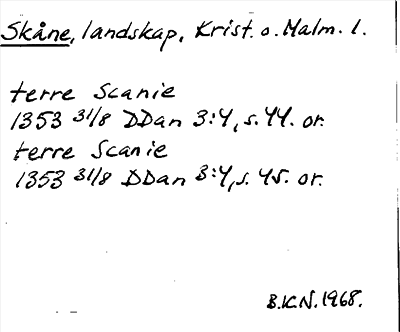 Skåne, landskap, Krist. o. Malm. l.
terre Scanie
1353 31/8 DDan 3:4, s. 44. or.
terre Scanie
1353 31/8 DDan 3:4, s. 45. or.
B.K.N. 1968.